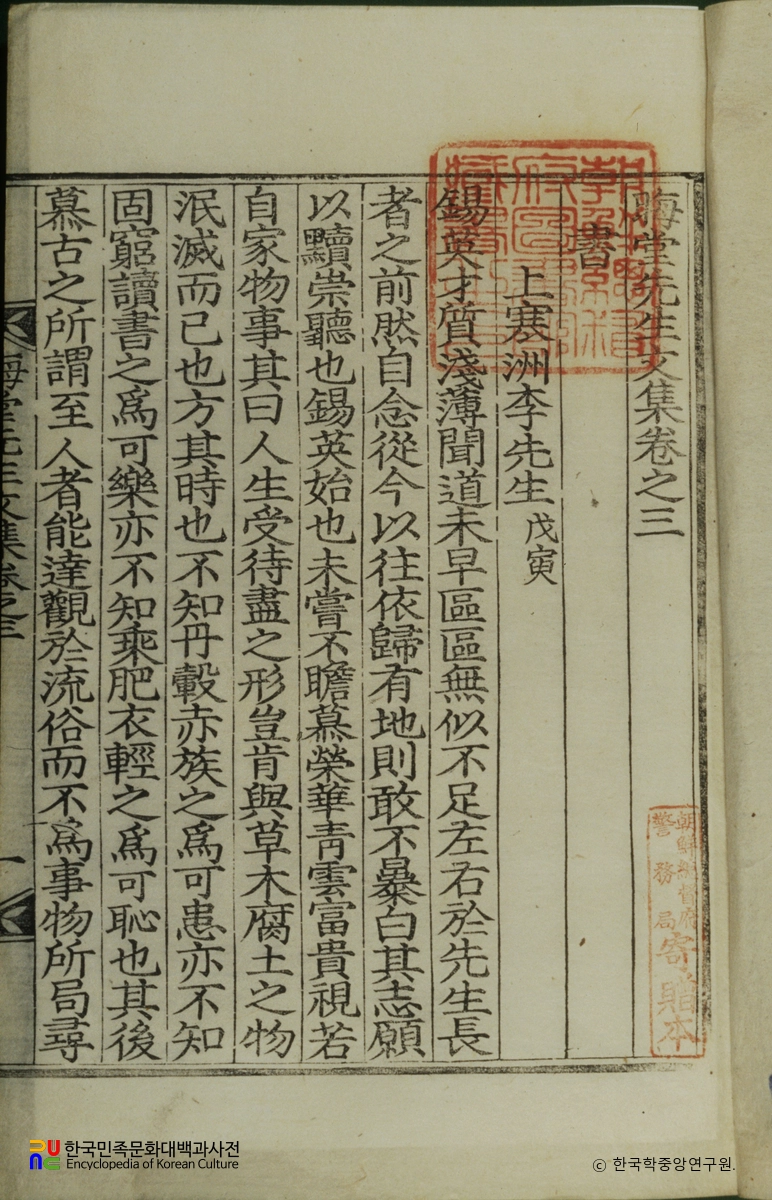 晦堂先生文集卷之三
書
上寒洲李先生 戊寅
錫英才質淺薄聞道未早區區無似不足左右於先生長
者之前然自念從今以往依歸有地則敢不暴白其志願
以黷崇聽也錫英始也未嘗不瞻慕榮華靑雲富貴視若
自家物事其曰人生受待盡之形豈肯與草木腐土之物
泯滅而已也方其時也不知丹轂赤族之爲可患亦不知
固窮讀書之爲可樂亦不知乘肥衣輕之爲可恥也其後
慕古之所謂至人者能達觀於流俗而不爲事物所局尋
晦堂先生文集卷之三
一
朝鮮總督府
警務局
寄贈本
한국민족문화대백과사전
Encyclopedia of Korean Culture
© 한국학중앙연구원.